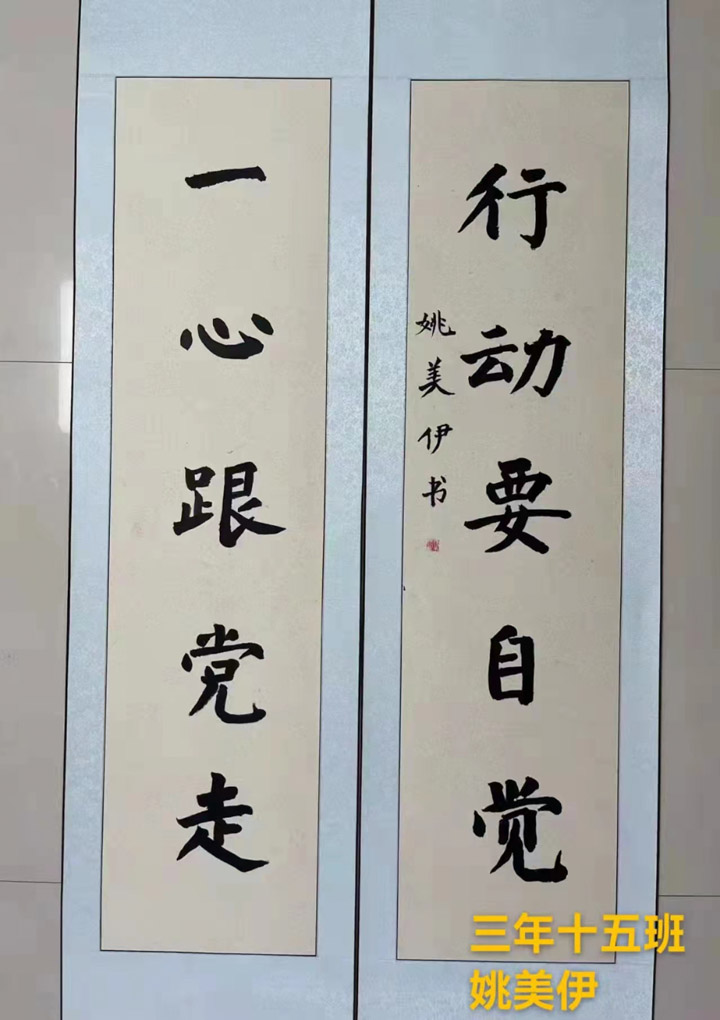 一心跟党走
行动要自觉
姚美伊书
三年十五班
姚美伊